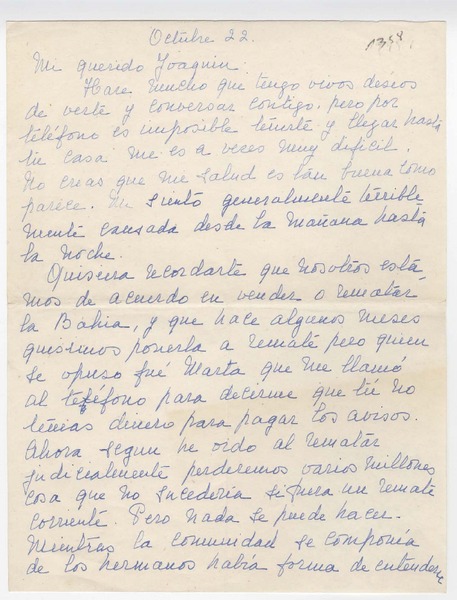 Octubre 22.
1358
Mi querido Joaquin:
Hace mucho que tengo vivos deseos
de verte y conversar contigo, pero por
teléfono es imposible tenerte y llegar hasta
tu casa me es a veces muy dificil.
No creas que mi salud es tan buena como
parece. Me siento generalmente terrible
mente cansada desde la mañana hasta
la noche.
Quisiera recordarte que nosotros esta
mos de acuerdo en vender o rematar
la Bahia, y que hace algunos meses
quisimos ponerla a remate pero quien
se opuso fué Marta que me llamó
al teléfono para decirme que tú no
tenias dinero para pagar los avisos.
Ahora segun he oido al rematar
judicialmente perderemos varios millones
cosa que no sucederia si fuera un remate
corriente. Pero nada se puede hacer.
Mientras la comunidad se componia
de los hermanos habia forma de entenderse